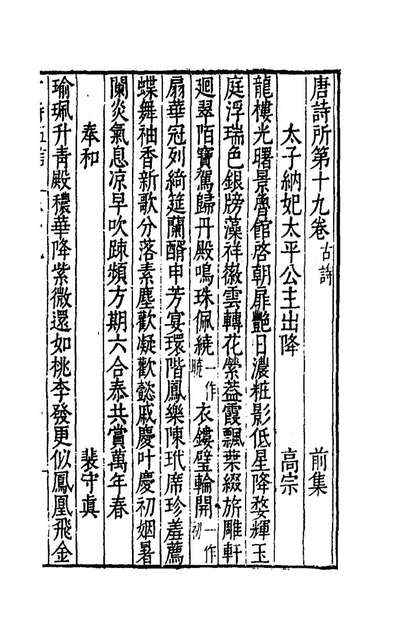 唐詩所第十九卷 古詩 前集
太子納妃太平公主出降 高宗
龍樓光曙景魯館啓朝扉艷日濃粧影低星降婺輝玉
庭浮瑞色銀牓藻祥徽雲轉花縈葢霞飄葉綴旂雕軒
廻翠陌寶駕歸丹殿鳴珠佩繞一作曉衣鏤璧輪開一作初
扇華冠列綺筵蘭醑申芳宴環階鳳樂陳玳席珍羞薦
蝶舞袖香新歌分落素塵歡凝歡懿戚慶叶慶初姻暑
闌炎氣息凉早吹疎頻方期六合泰共賞萬年春
奉和 裴守眞
瑜珮升青殿穠華降紫微還如桃李發更似鳳凰飛金